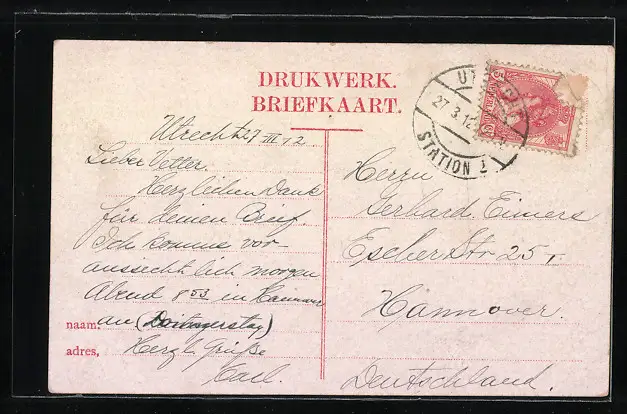 DRUKWERK.
BRIEFKAART.
Utrecht 27 III 12
Lieber Vetter.
Herzlichen Dank
für deinen Brief.
Ich komme vor-
aussichtlich morgen
Abend 8 53 in Hannover
an (Donnerstag)
Herzl. Grüße
Carl.
naam:
adres,
Herrn
Gerhard Eimers
Escher Str 25 I.
Hannover.
Deutschland.
UT
27.3.12
STATION